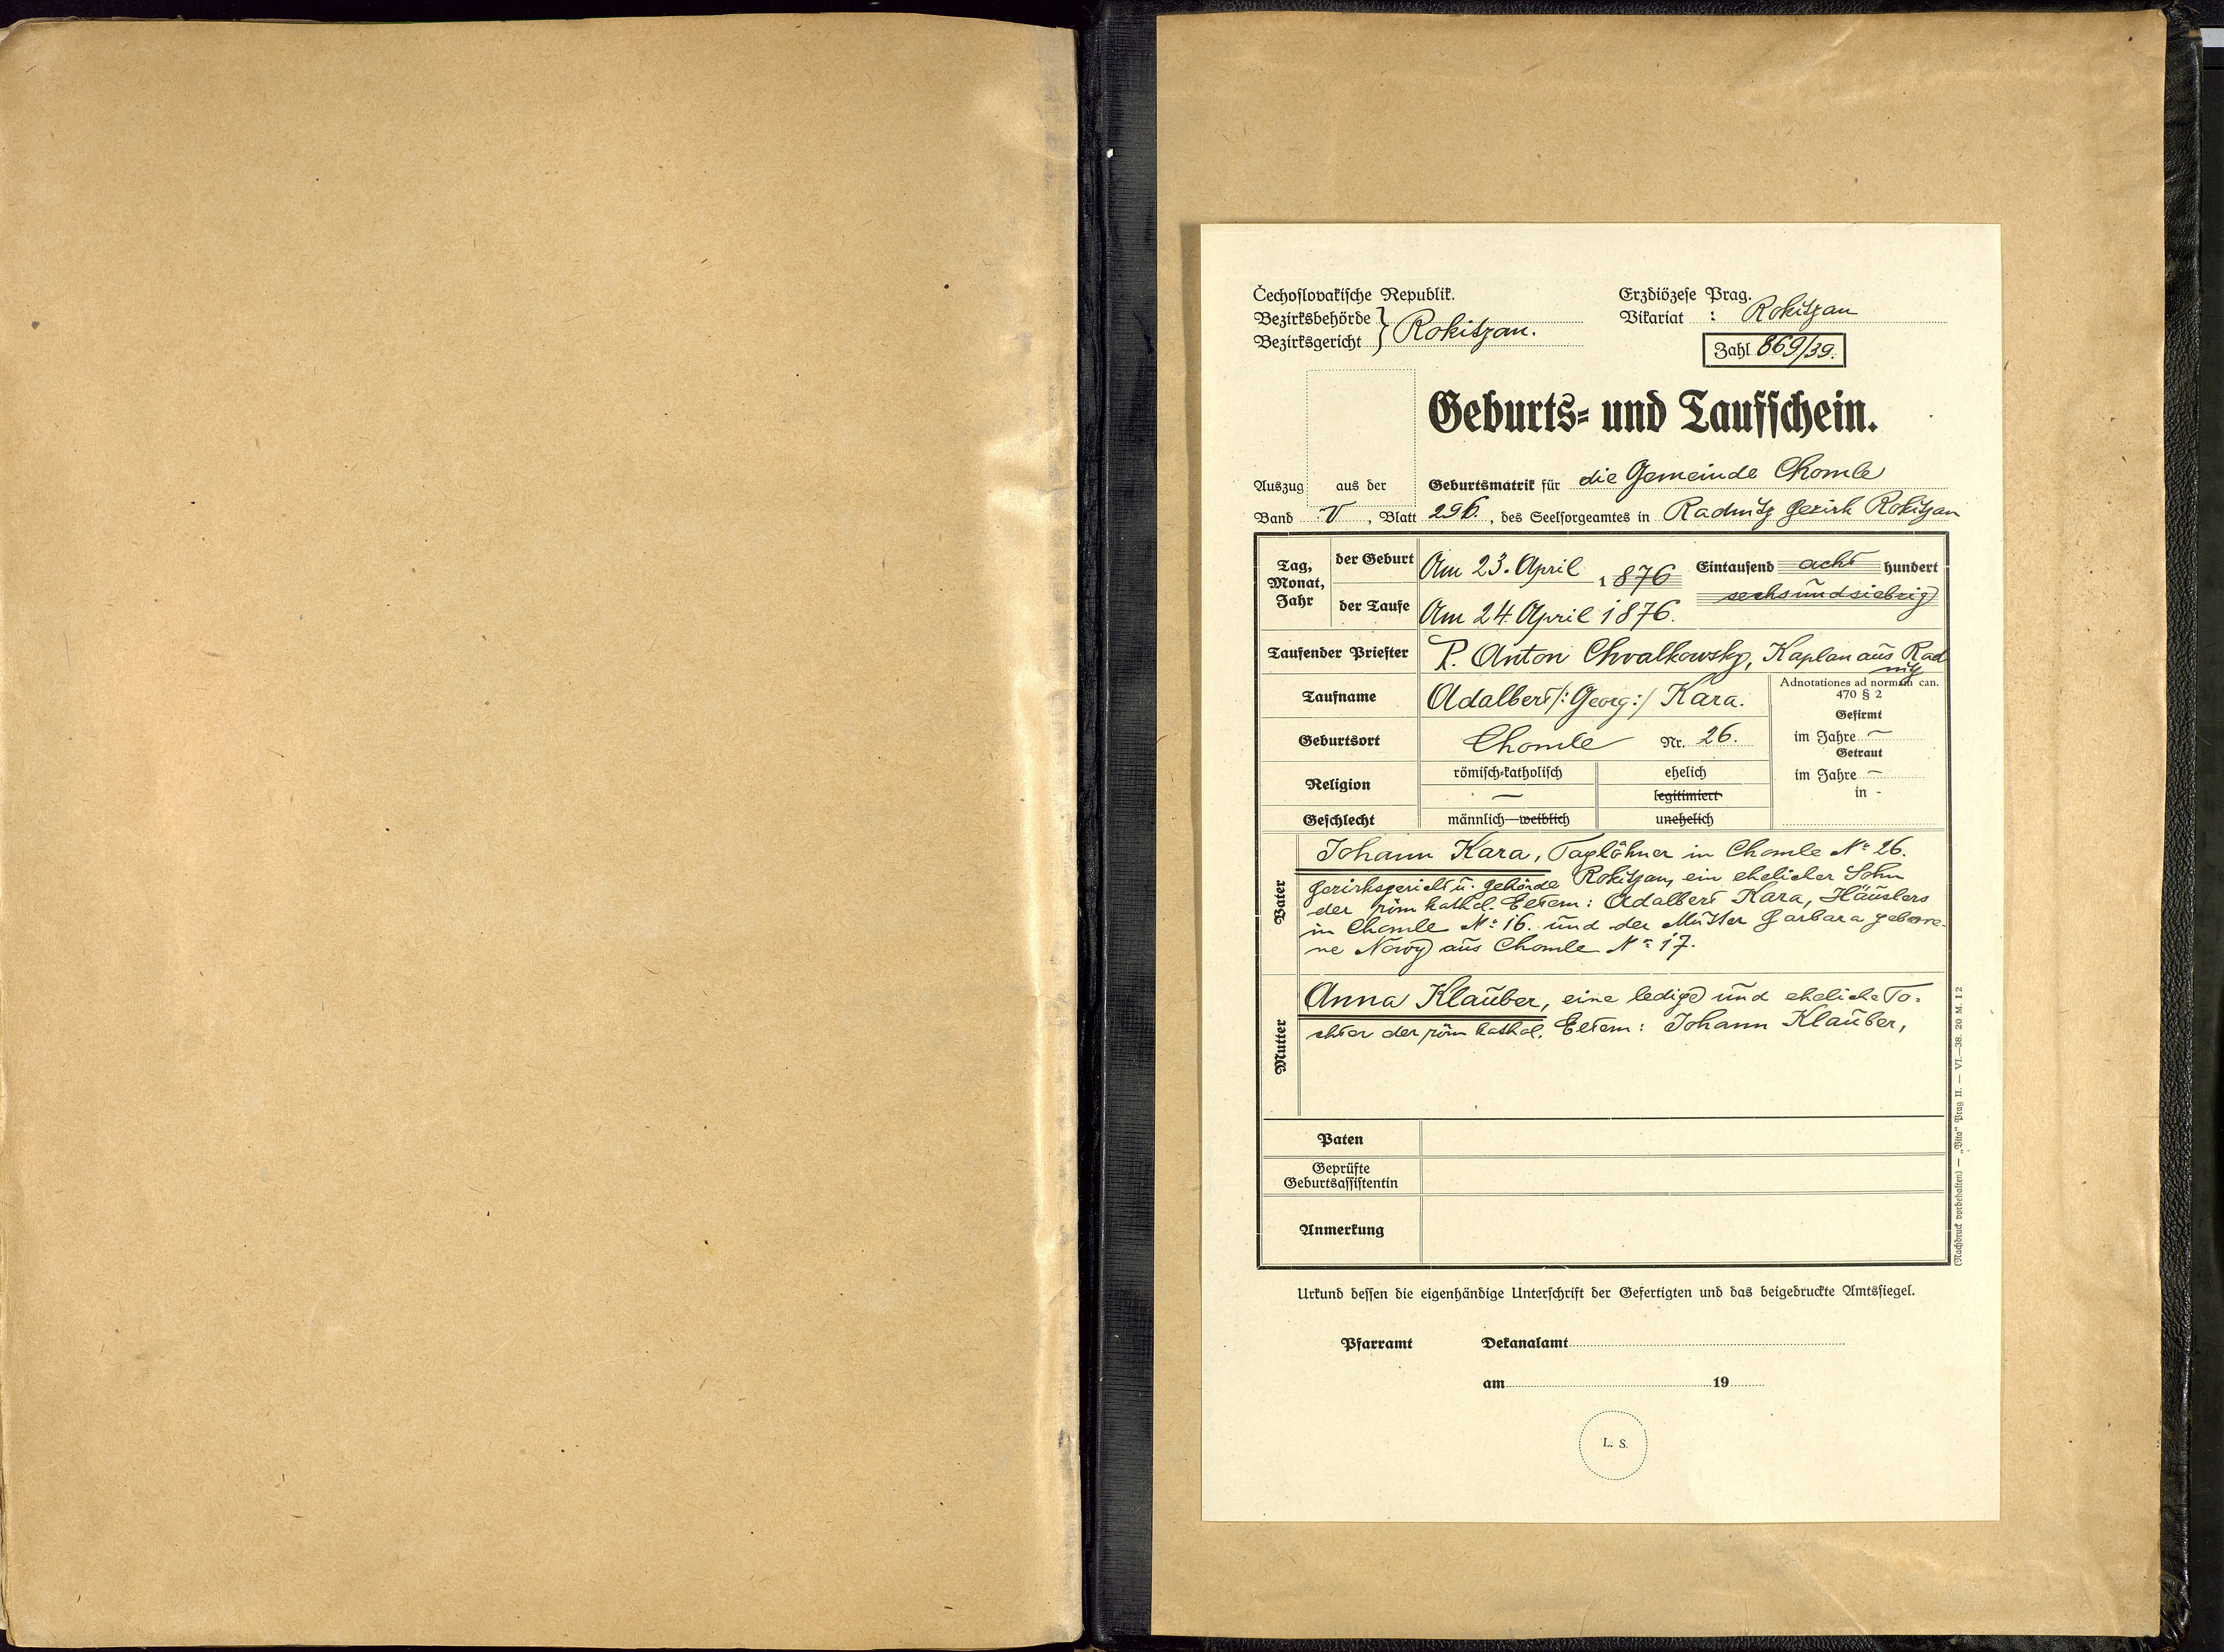 Čechoslovakische Republik.
Bezirksbehörde } Rokitzan.
Bezirksgericht
Erzdiözese Prag.
Vikariat : Rokitzan
Zahl 869/39.
Geburts- und Taufschein.
Auszug aus der Geburtsmatrik für die Gemeinde Chomle
Band V, Blatt 296., des Seelsorgeamtes in Radnitz Bezirk Rokitzan
Tag, Monat, Jahr
der Geburt Am 23. April 1876 Eintausend acht hundert
sechsundsiebzig
der Taufe Am 24. April 1876.
Taufender Priester P. Anton Chvalkowsky, Kaplan aus Rad
nitz
Taufname Adalbert /: Georg :/ Kara.
Adnotationes ad normam can.
470 § 2
Gefirmt
im Jahre –
Getraut
im Jahre –
in -
Geburtsort Chomle Nr. 26.
Religion römisch-katholisch ehelich
— legitimiert
Geschlecht männlich—weiblich unehelich
Vater
Johann Kara, Taglöhner in Chomle Nº 26.
Bezirksgericht u. Behörde Rokitzan, ein ehelicher Sohn
der röm kathol. Eltern: Adalbert Kara, Häuslers
in Chomle Nº 16. und der Mutter Barbara gebore-
ne Nowy aus Chomle Nº 17.
Mutter
Anna Klauber, eine ledige und eheliche To=
chter der röm kathol. Eltern: Johann Klauber,
Paten
Geprüfte
Geburtsassistentin
Anmerkung
(Nachdruck vorbehalten) — „Vita“ Prag II. — VI.—38. 20 M. I 2
Urkund dessen die eigenhändige Unterschrift der Gefertigten und das beigedruckte Amtssiegel.
Pfarramt Dekanalamt
am 19
L. S.